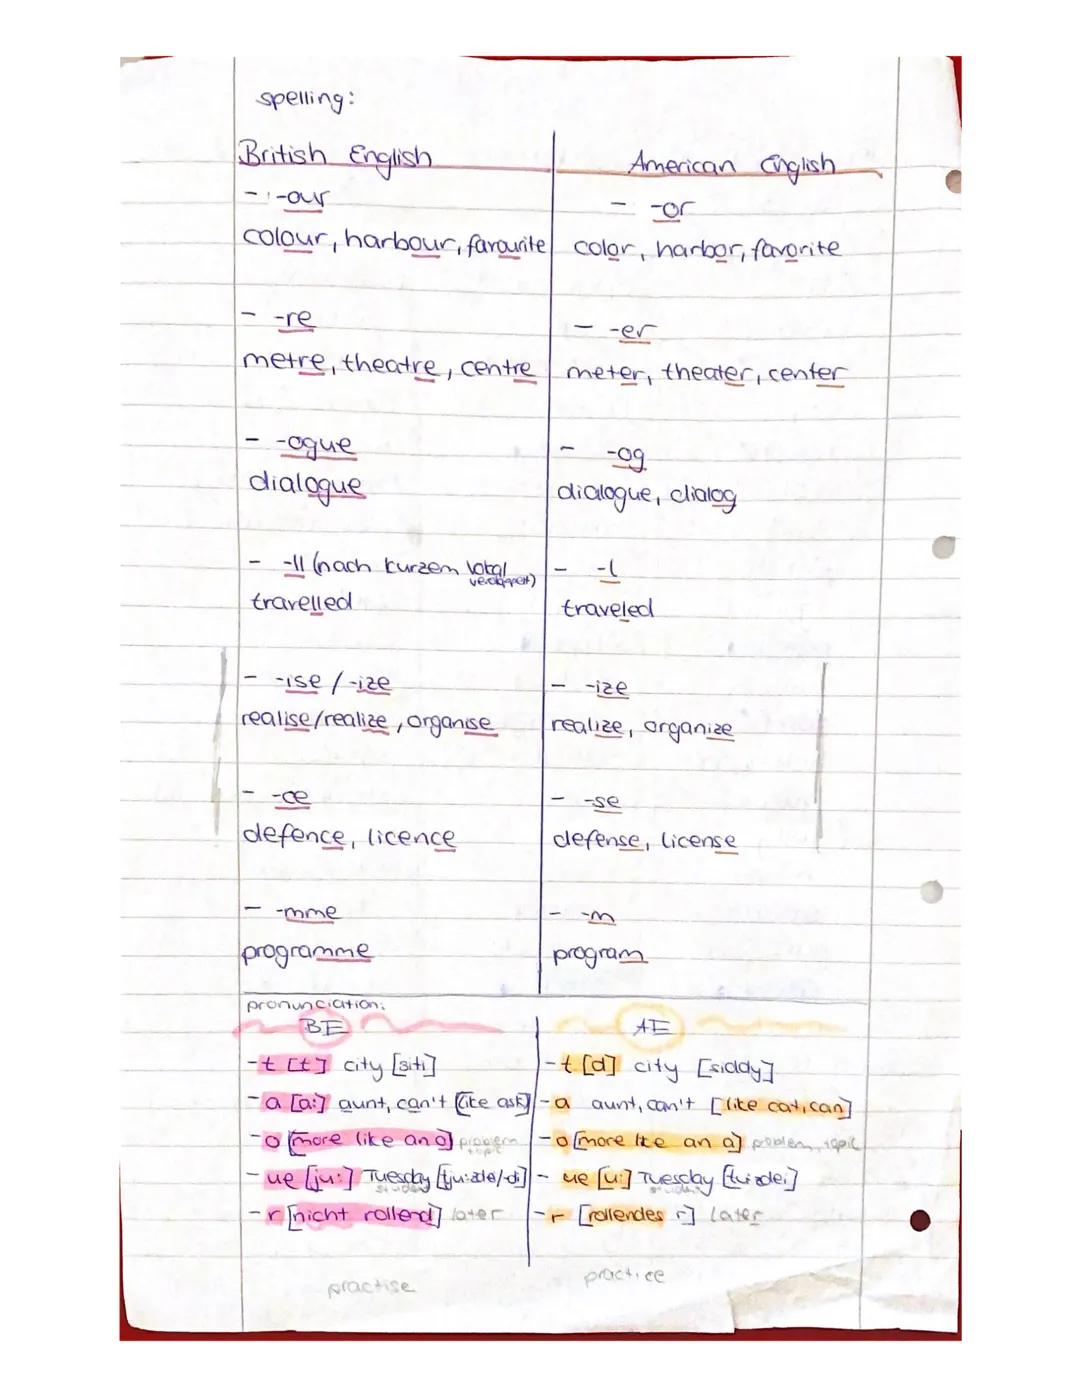 spelling:
British English
American English
- -our
- -or
colour, harbour, favourite
color, harbor, favorite
- -re
- -er
metre, theatre, centre
meter, theater, center
- -ogue
- -og
dialogue
dialogue, dialog
- -ll (nach kurzem Vokal
verdoppelt)
- -l
travelled
traveled
- -ise / -ize
- -ize
realise/realize, organise
realize, organize
- -ce
- -se
defence, licence
defense, license
- -mme
- -m
programme
program
pronunciation:
BE
AE
- t [t] city [siti]
- t [d] city [siddy]
- a [a:] aunt, can't [like ask]
- a aunt, can't [like cat, can]
- o [more like an o] problem
topic
- o [more like an a] problem, topic
- ue [ju:] Tuesday
student
- ue [u:] Tuesday [tu:zdei]
student
- r [nicht rollend] later
- r [rollendes r] later
practise
practice